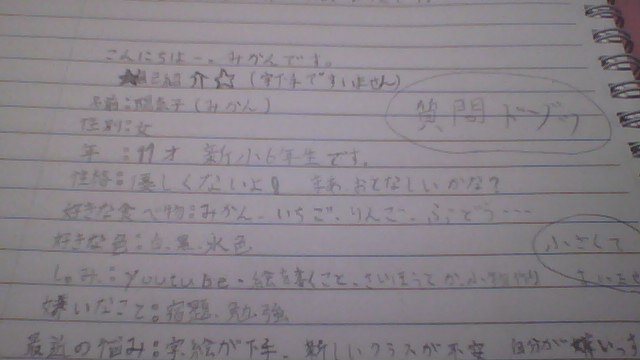 こんにちはー。みかんです。
自己紹介☆(字下手ですいません)
名前:(みかん)
質問ドーゾッ
性別:女
年:11才 新小6年生です。
性格:優しくないよ まあ、おとなしいかな?
好きな食べ物:みかん、いちご、りんご、ぶどう……
好きな色:白、黒、水色
小さくて
しゅみ:Youtube・絵を書くこと、さいほうとか
嫌いなこと:宿題、勉強
最近の悩み:字、絵が下手、新しいクラスが不安 自分が嫌い